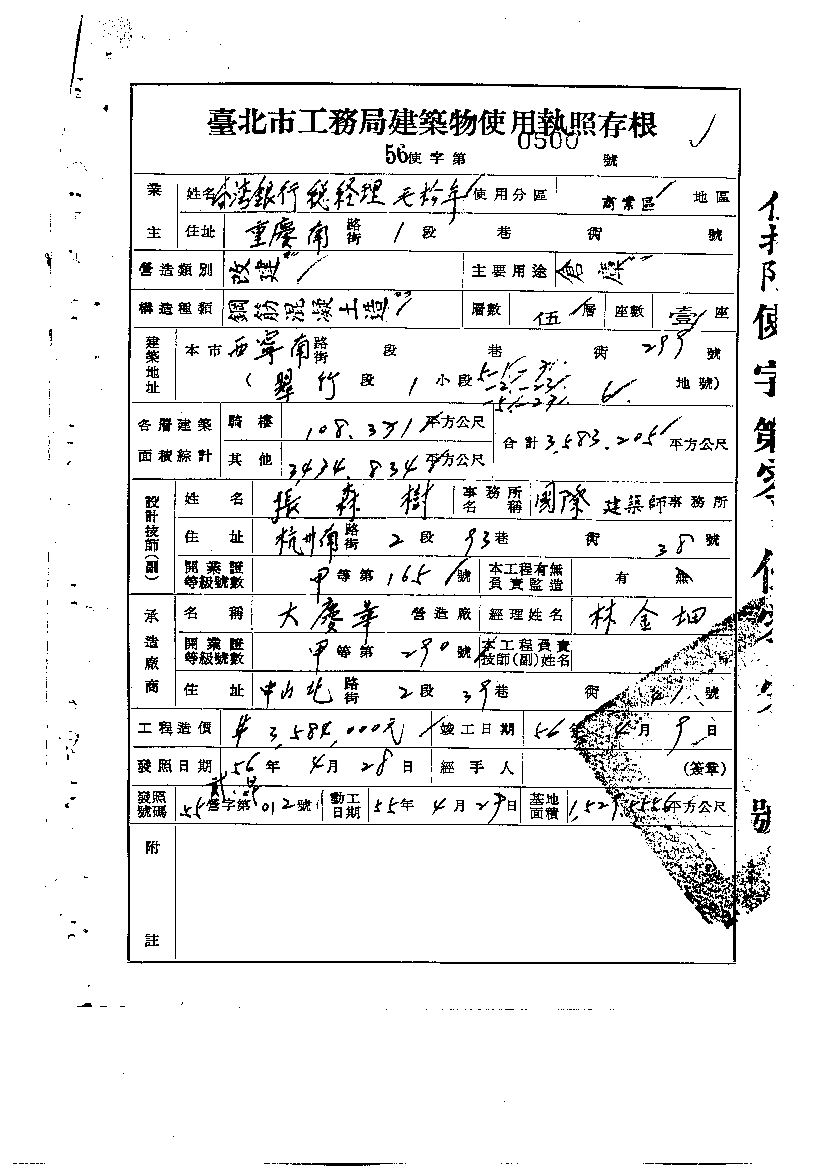 臺北市工務局建築物使用執照存根
56使字第 0500 號
業主 姓名 台灣銀行總経理 毛松年 使用分區 商業區 地區
住址 重慶南 路街 1 段 巷 街 號
營造類別 改建 主要用途 倉庫
構造種類 鋼筋混凝土造 層數 伍 層 座數 壹 座
建築地址 本市 西寧南 路街 段 巷 街 299 號
( 翠竹 段 1 小段 地號)
各層建築面積綜計 騎樓 108.371 平方公尺 合計 3,583.205 平方公尺
其他 3474.834 平方公尺
設計技師(副) 姓名 張森樹 事務所名稱 國際建築師事務所
住址 杭州南 路街 2 段 93 巷 街 38 號
開業證等級號數 甲 等第 165 號 本工程有無負責監造 有 無
承造廠商 名稱 大慶華 營造廠 經理姓名 林金
開業證等級號數 甲 等第 290 號 本工程負責技師(副)姓名
住址 中山北 路街 2 段 39 巷 街 41 號
工程造價 3,584,000元 竣工日期 56 年 4 月 9 日
發照日期 56 年 4 月 28 日 經手人 (簽章)
發照號碼 55 營字第 012 號 動工日期 55年 4 月 29 日 基地面積 平方公尺
附註
使字第
號